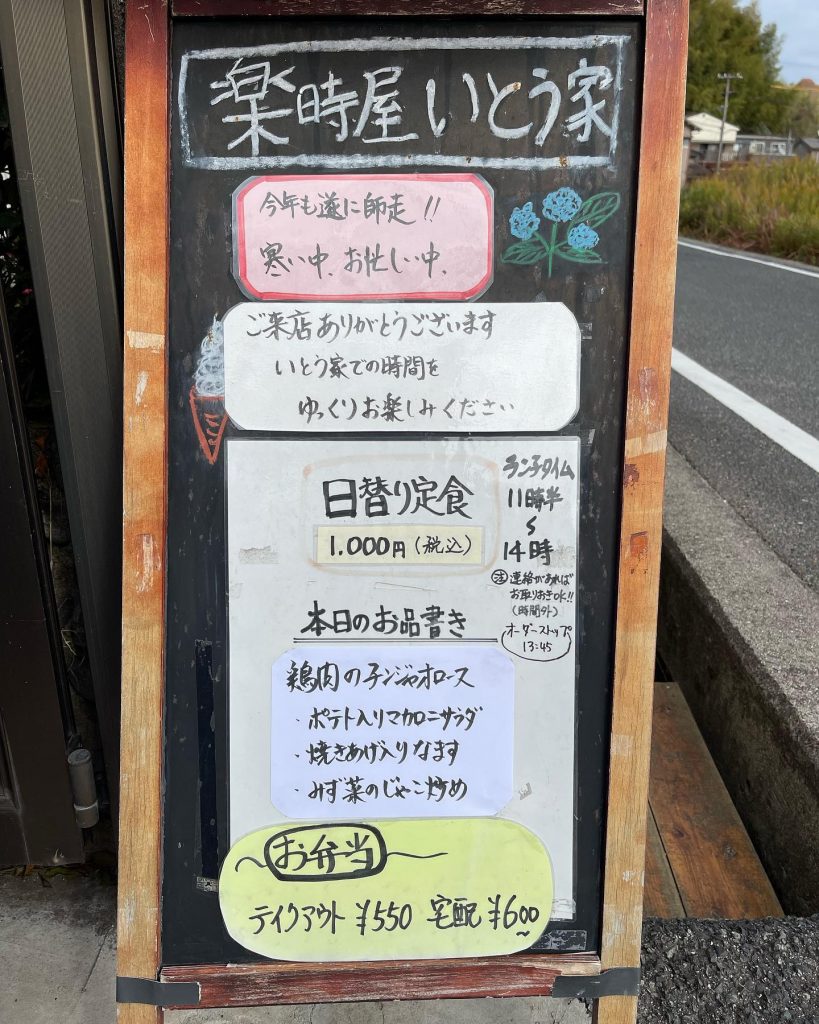 楽時屋 いとう家
今年も遂に師走!!
寒い中、お忙しい中、
ご来店ありがとうございます
いとう家での時間を
ゆっくりお楽しみください
日替り定食
1.000円(税込)
ランチタイム
11時半
~
14時
注 連絡があれば
お取りおきOK!!
(時間外)
オーダーストップ
13:45
本日のお品書き
鶏肉のチンジャオロース
・ポテト入りマカロニサラダ
・焼きあげ入りなます
・みず菜のじゃこ炒め
お弁当
テイクアウト ¥550 宅配 ¥600~